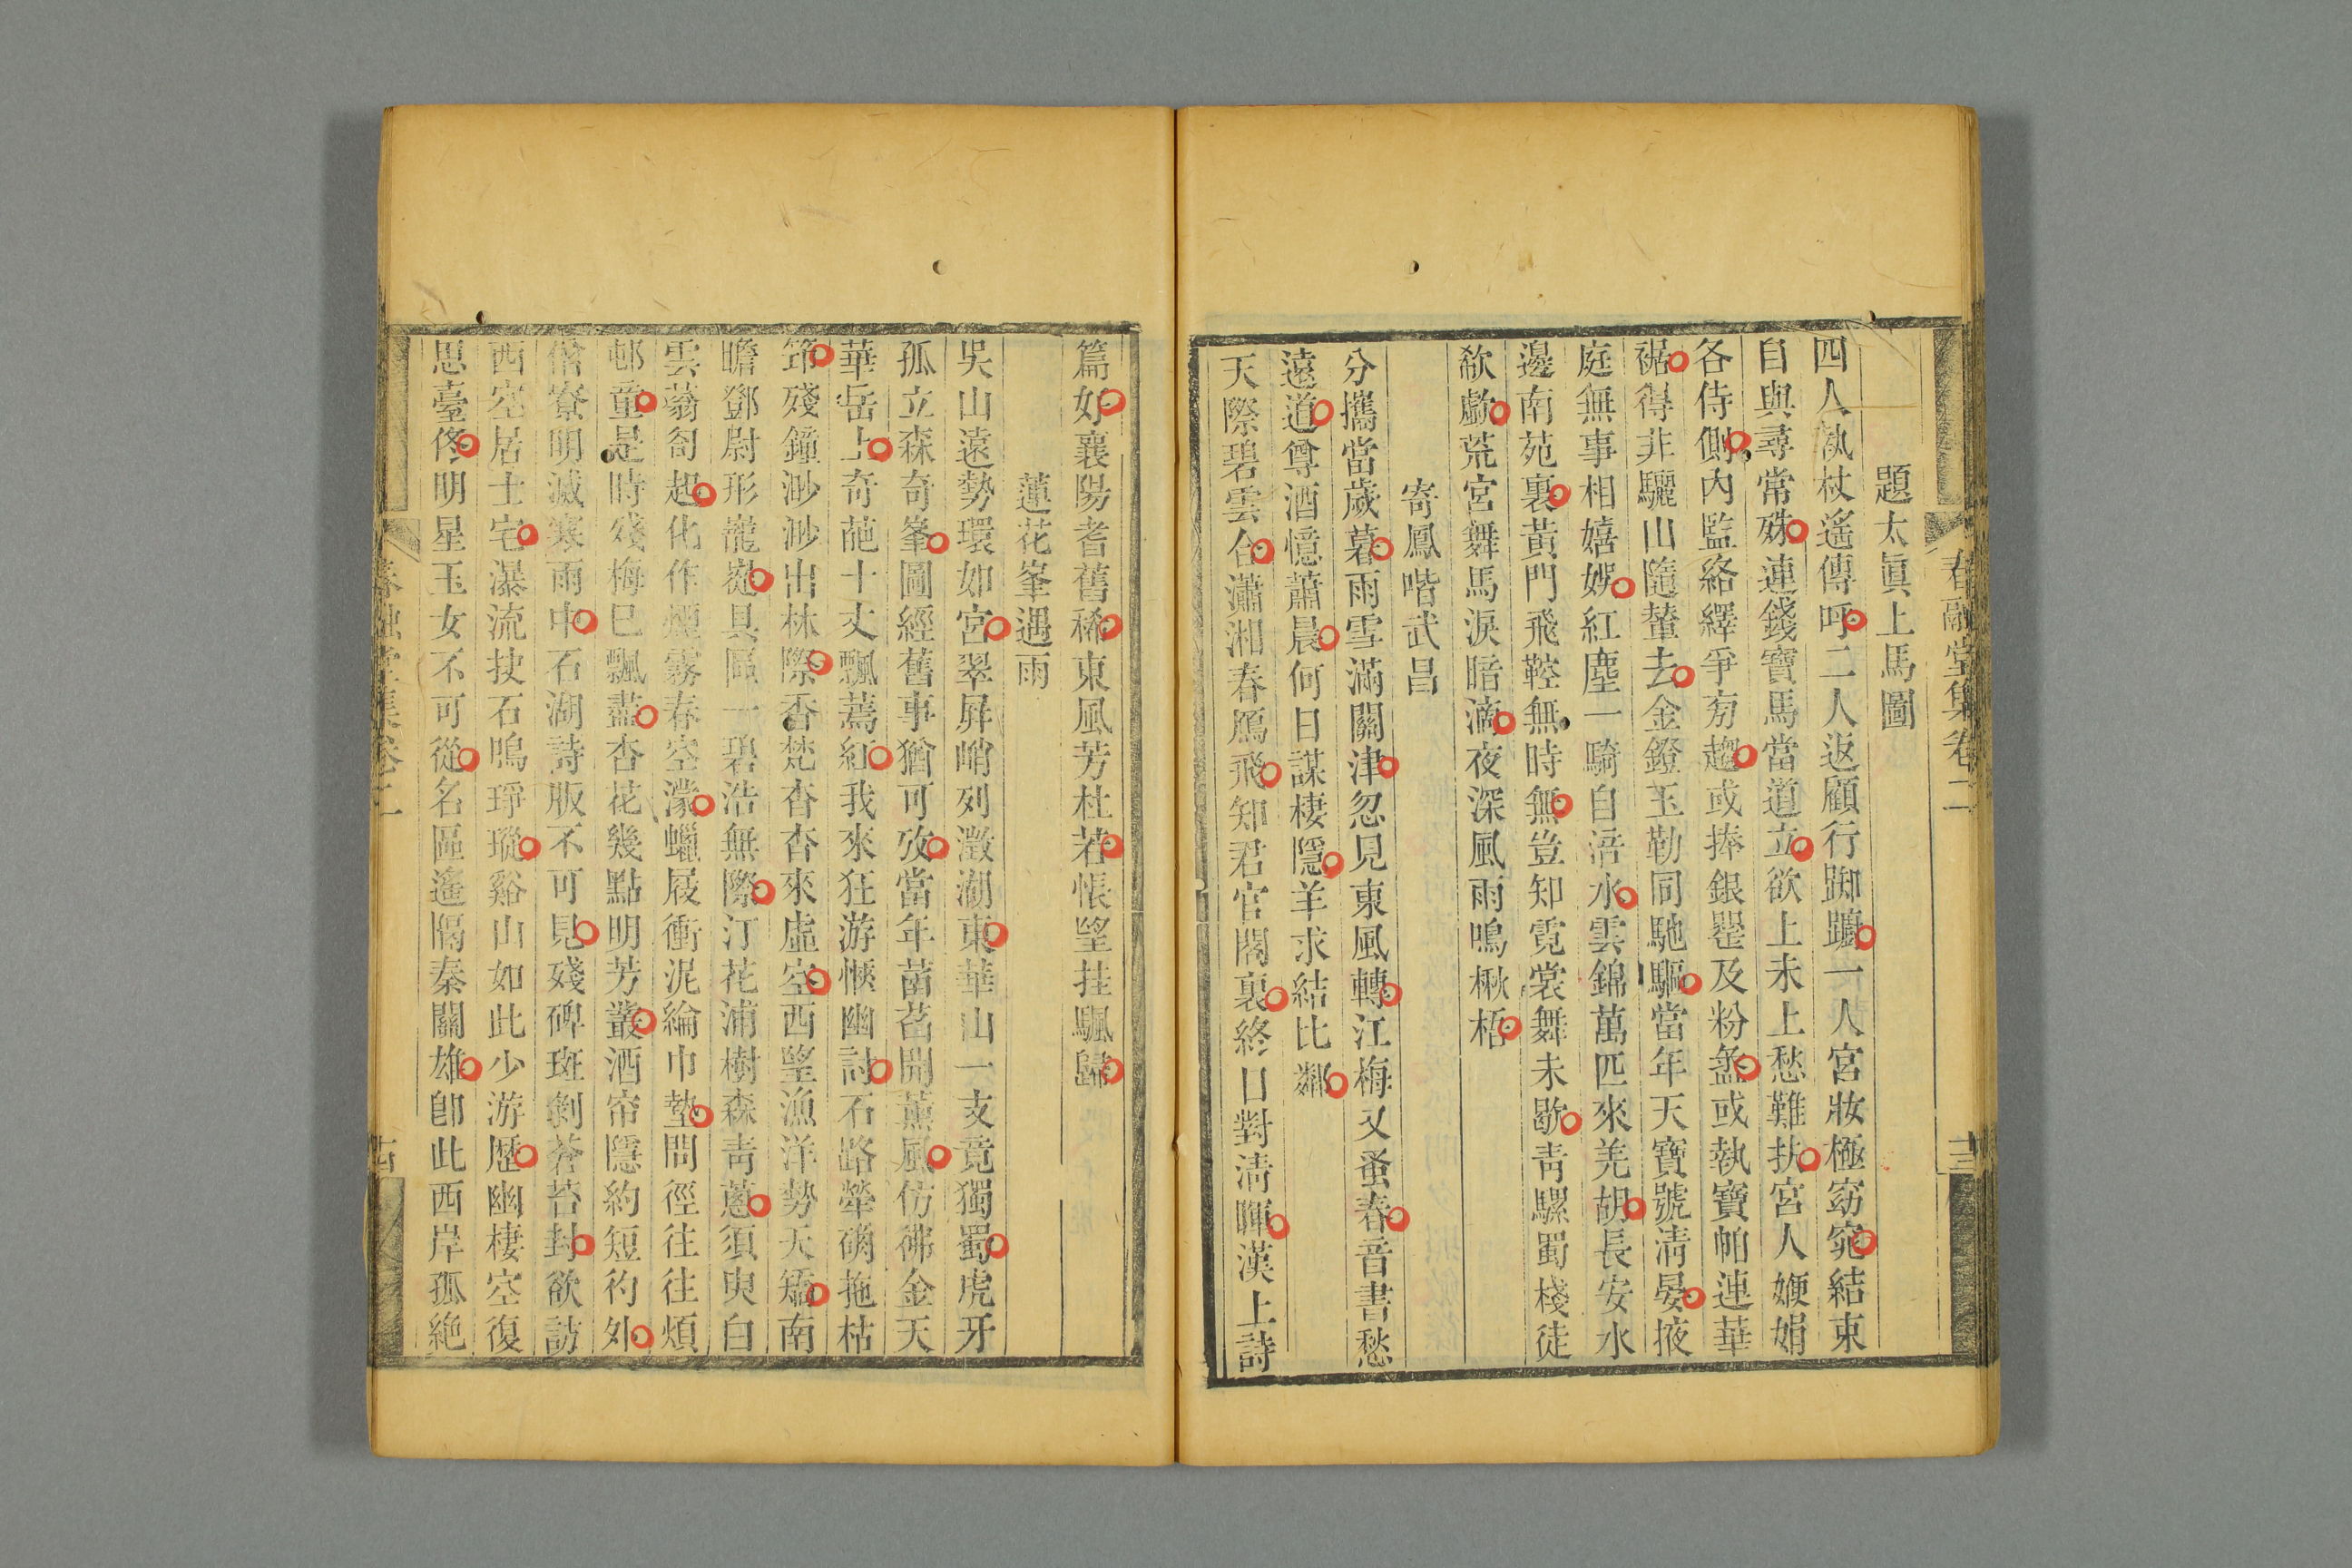 春融堂集卷二
十三
題太眞上馬圖
四人執杖遙傳呼二人返顧行踟躕一人宮妝極窈窕結束
自與尋常殊連錢寶馬當道立欲上未上愁難扶宮人娉娟
各侍側內監絡繹爭旁趨或捧銀罌及粉盝或執寶帕連華
裾得非驪山隨輦去金鐙玉勒同馳驅當年天寶號淸晏掖
庭無事相嬉娛紅塵一騎自涪水雲錦萬匹來羌胡長安水
邊南苑裏黃門飛鞚無時無豈知霓裳舞未歇靑騾蜀棧徒
欷歔荒宮舞馬淚暗滴夜深風雨鳴楸梧
寄鳳喈武昌
分攜當歲暮雨雪滿關津忽見東風轉江梅又蚤春音書愁
遠道尊酒憶蕭晨何日謀棲隱羊求結比鄰
天際碧雲合瀟湘春鴈飛知君官閣裏終日對淸暉漢上詩
篇好襄陽耆舊稀東風芳杜若悵望挂颿歸
蓮花峯遇雨
吳山遠勢環如宮翠屛峭列澂湖東華山一支竟獨蜀虎牙
孤立森奇峯圖經舊事猶可攷當年菡萏開薰風仿彿金天
華岳上奇葩十丈飄蔫紅我來狂游愜幽討石路犖确拖枯
筇殘鐘渺渺出林際香梵杳杳來虛空西望漁洋勢夭矯南
瞻鄧尉形巃嵸具區一碧浩無際汀花浦樹森靑蔥須臾白
雲蓊匌起化作煙霧春空濛蠟屐衝泥綸巾墊問徑往往煩
邨童是時殘梅已飄盡杏花幾點明芳叢酒帘隱約短彴外
僧寮明滅寒雨中石湖詩版不可見殘碑斑剝蒼苔封欲訪
西空居士宅瀑流抉石鳴琤瑽谿山如此少游歷幽棲空復
思臺佟明星玉女不可從名區遙隔秦關雄卽此西岸孤絶
春融堂集卷二
十四